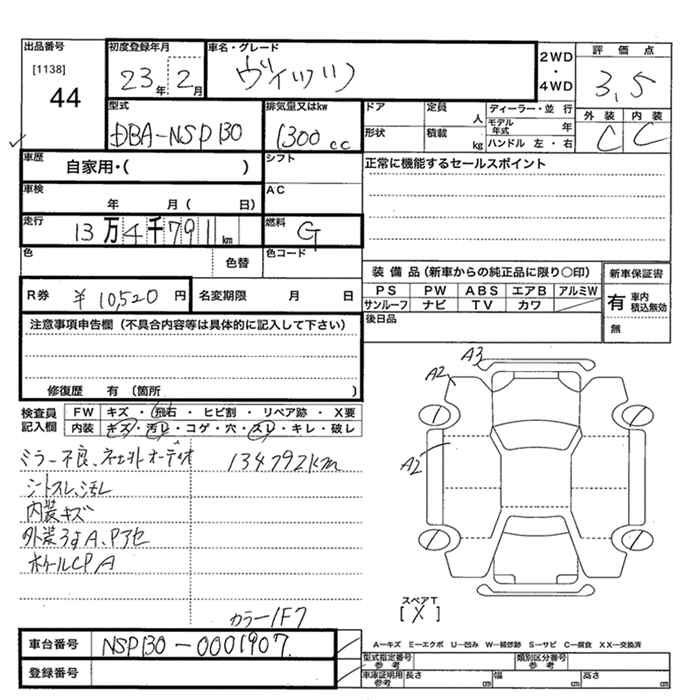 出品番号
[1138]
44
初度登録年月
23年 2月
車名・グレード
ヴィッツ
2WD
・
4WD
評価点
3.5
外装 内装
C C
型式
DBA-NSP130
排気量又はkw
1300cc
ドア 定員 人
形状 積載 kg
ディーラー・並行
モデル年式 年
ハンドル 左・右
車歴
自家用・( )
シフト
正常に機能するセールスポイント
車検
年 月( 日)
AC
走行
13万4千791km
燃料
G
色 色替
色コード
R券 ¥10,520円
名変期限 月 日
装備品(新車からの純正品に限り○印)
PS PW ABS エアB アルミW
サンルーフ ナビ TV カワ
新車保証書
有 車内積込無効
無
後日品
注意事項申告欄(不具合内容等は具体的に記入して下さい)
修復歴 有(箇所 )
検査員記入欄
FW キズ・飛石・ヒビ割・リペア跡・X要
内装 キズ・汚レ・コゲ・穴・スレ・キレ・破レ
ミラー不良、 オーディオ 134792km
シートスレ、汚レ
内装キズ
外装 A、Pアセ
ホイールCP A
カラー1F7
A3
A2
A2
スペアT
[X]
車台番号 NSP130-0001907
登録番号
A-キズ E-エクボ U-凹み W-補修跡 S-サビ C-腐食 XX-交換済
型式指定番号 参考
類別区分番号 参考
車庫証明用 参考 長さ cm 幅 cm 高さ cm